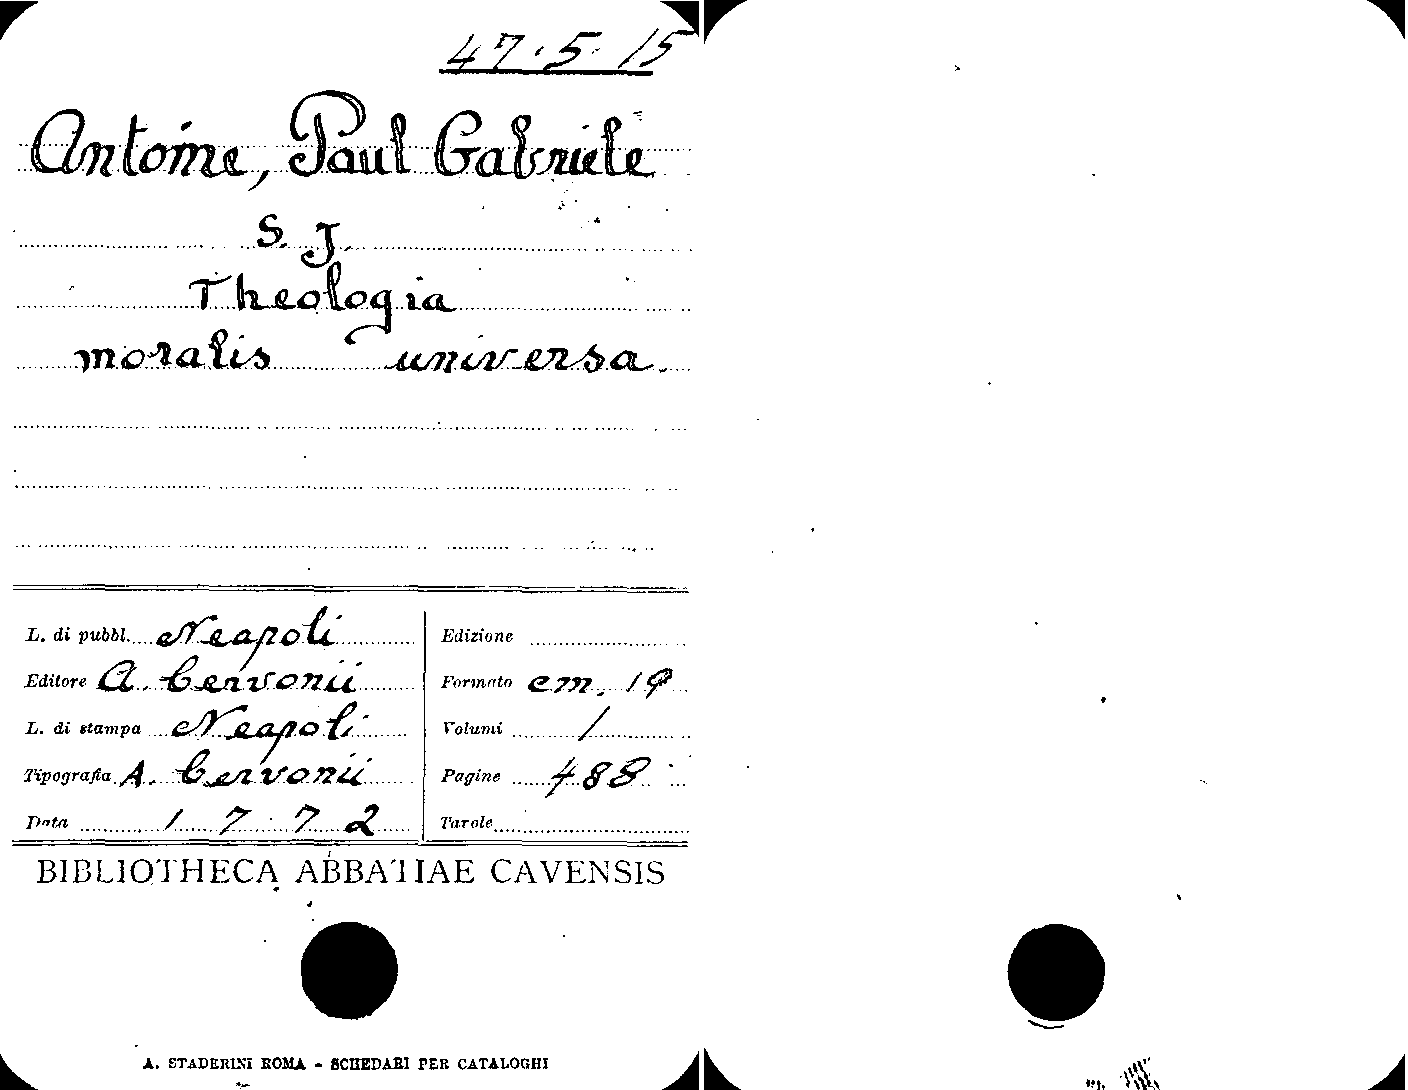 47.5.15
Antoine, Paul Gabriele
S. J.
Theologia
moralis universa.
L. di pubbl. Neapoli
Editore A. Cervonii
L. di stampa Neapoli
Tipografia A. Cervonii
Data 1772
Edizione
Formato cm. 19
Volumi 1
Pagine 488
Tavole
BIBLIOTHECA ABBATIAE CAVENSIS
A. STADERINI ROMA - SCHEDARI PER CATALOGHI